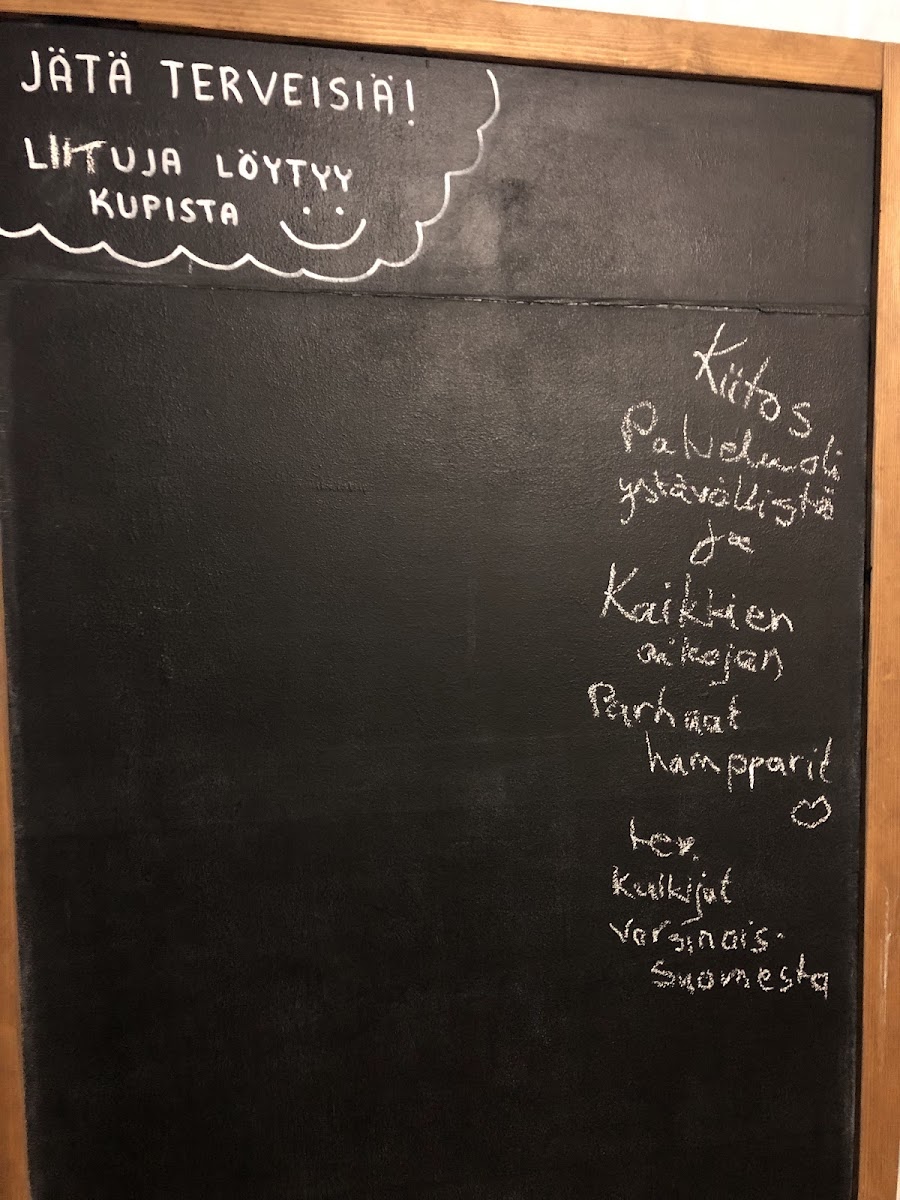 JÄTÄ TERVEISIÄ!
LIITUJA LÖYTYY
KUPISTA
Kiitos
Palvelu oli
ystävällistä
ja
Kaikkien
aikojan
Parhaat
hampparit
ter.
Kulkijat
varsinais-
Suomesta